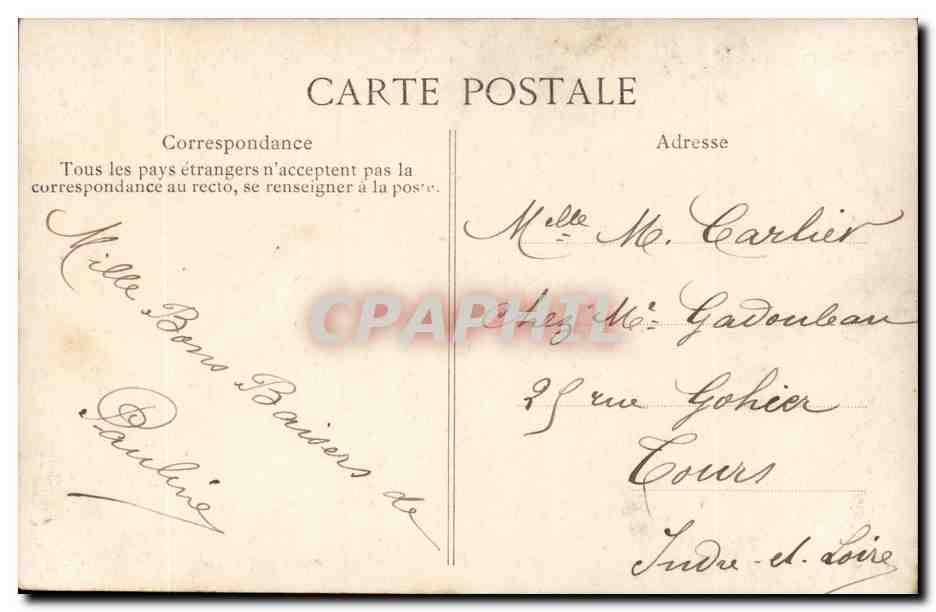 CARTE POSTALE
Correspondance
Tous les pays étrangers n'acceptent pas la
correspondance au recto, se renseigner à la poste.
Mille Bons Baisers de
Pauline
Adresse
Melle M. Carlier
Chez Mr Gadouleau
25 rue Gohier
Tours
Indre-et-Loire
CPAPHIL